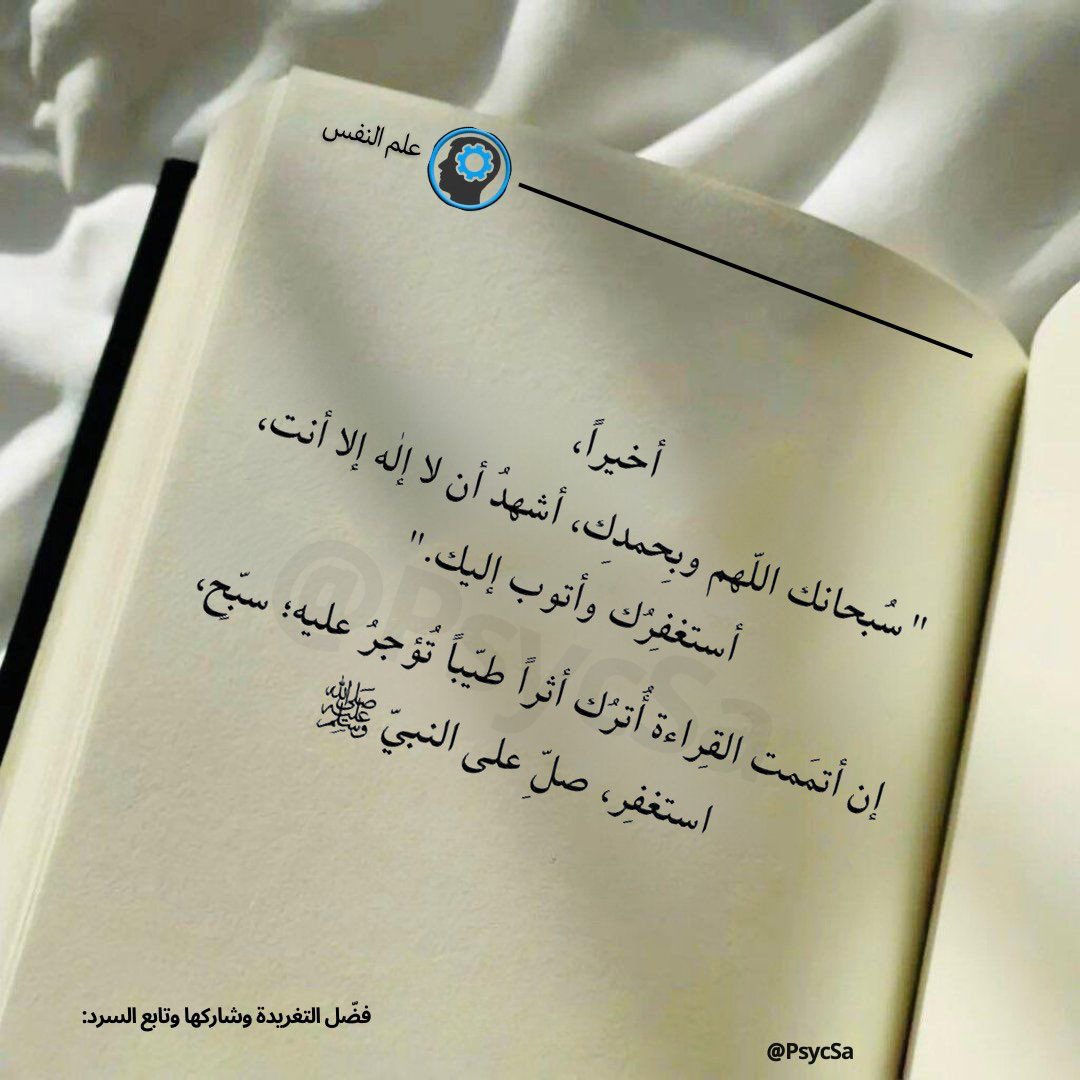 علم النفس
أخيراً،
" سُبحانك اللّهم وبِحمدكِ، أشهدُ أن لا إلٰه إلا أنت،
أستغفِرُك وأتوب إليك."
إن أتمَمت القِراءة أُترُك أثراً طيّباً تُؤجرُ عليه؛ سبّح،
استغفِر، صلِّ على النبيّ ﷺ
@PsycSa
فضّل التغريدة وشاركها وتابع السرد:
@PsycSa